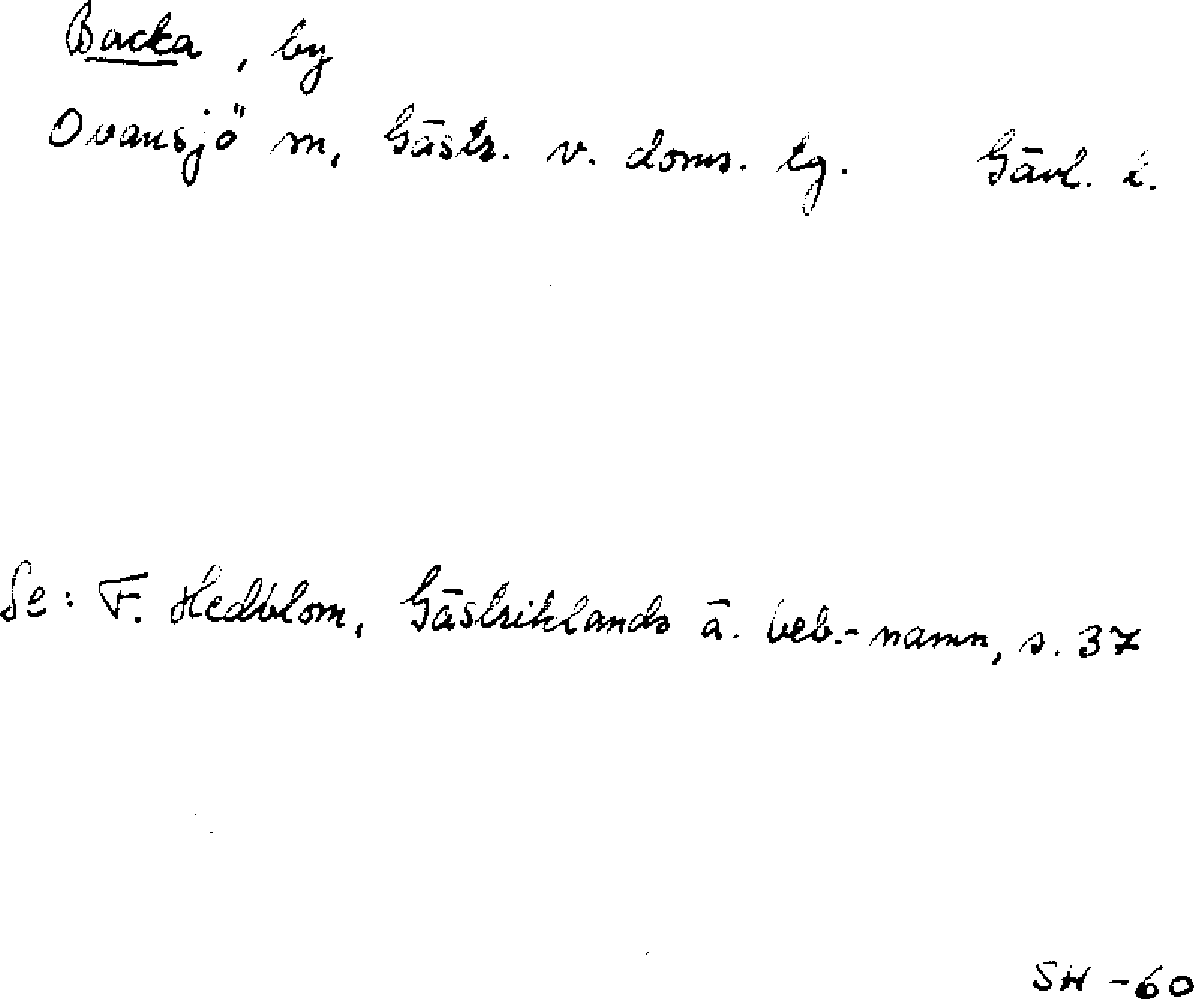 Backa, by
Ovansjö sn, Gästr. v. doms. lg. Gävl. l.
Se: F. Hedblom, Gästriklands ä. beb.-namn, s. 37
SH -60